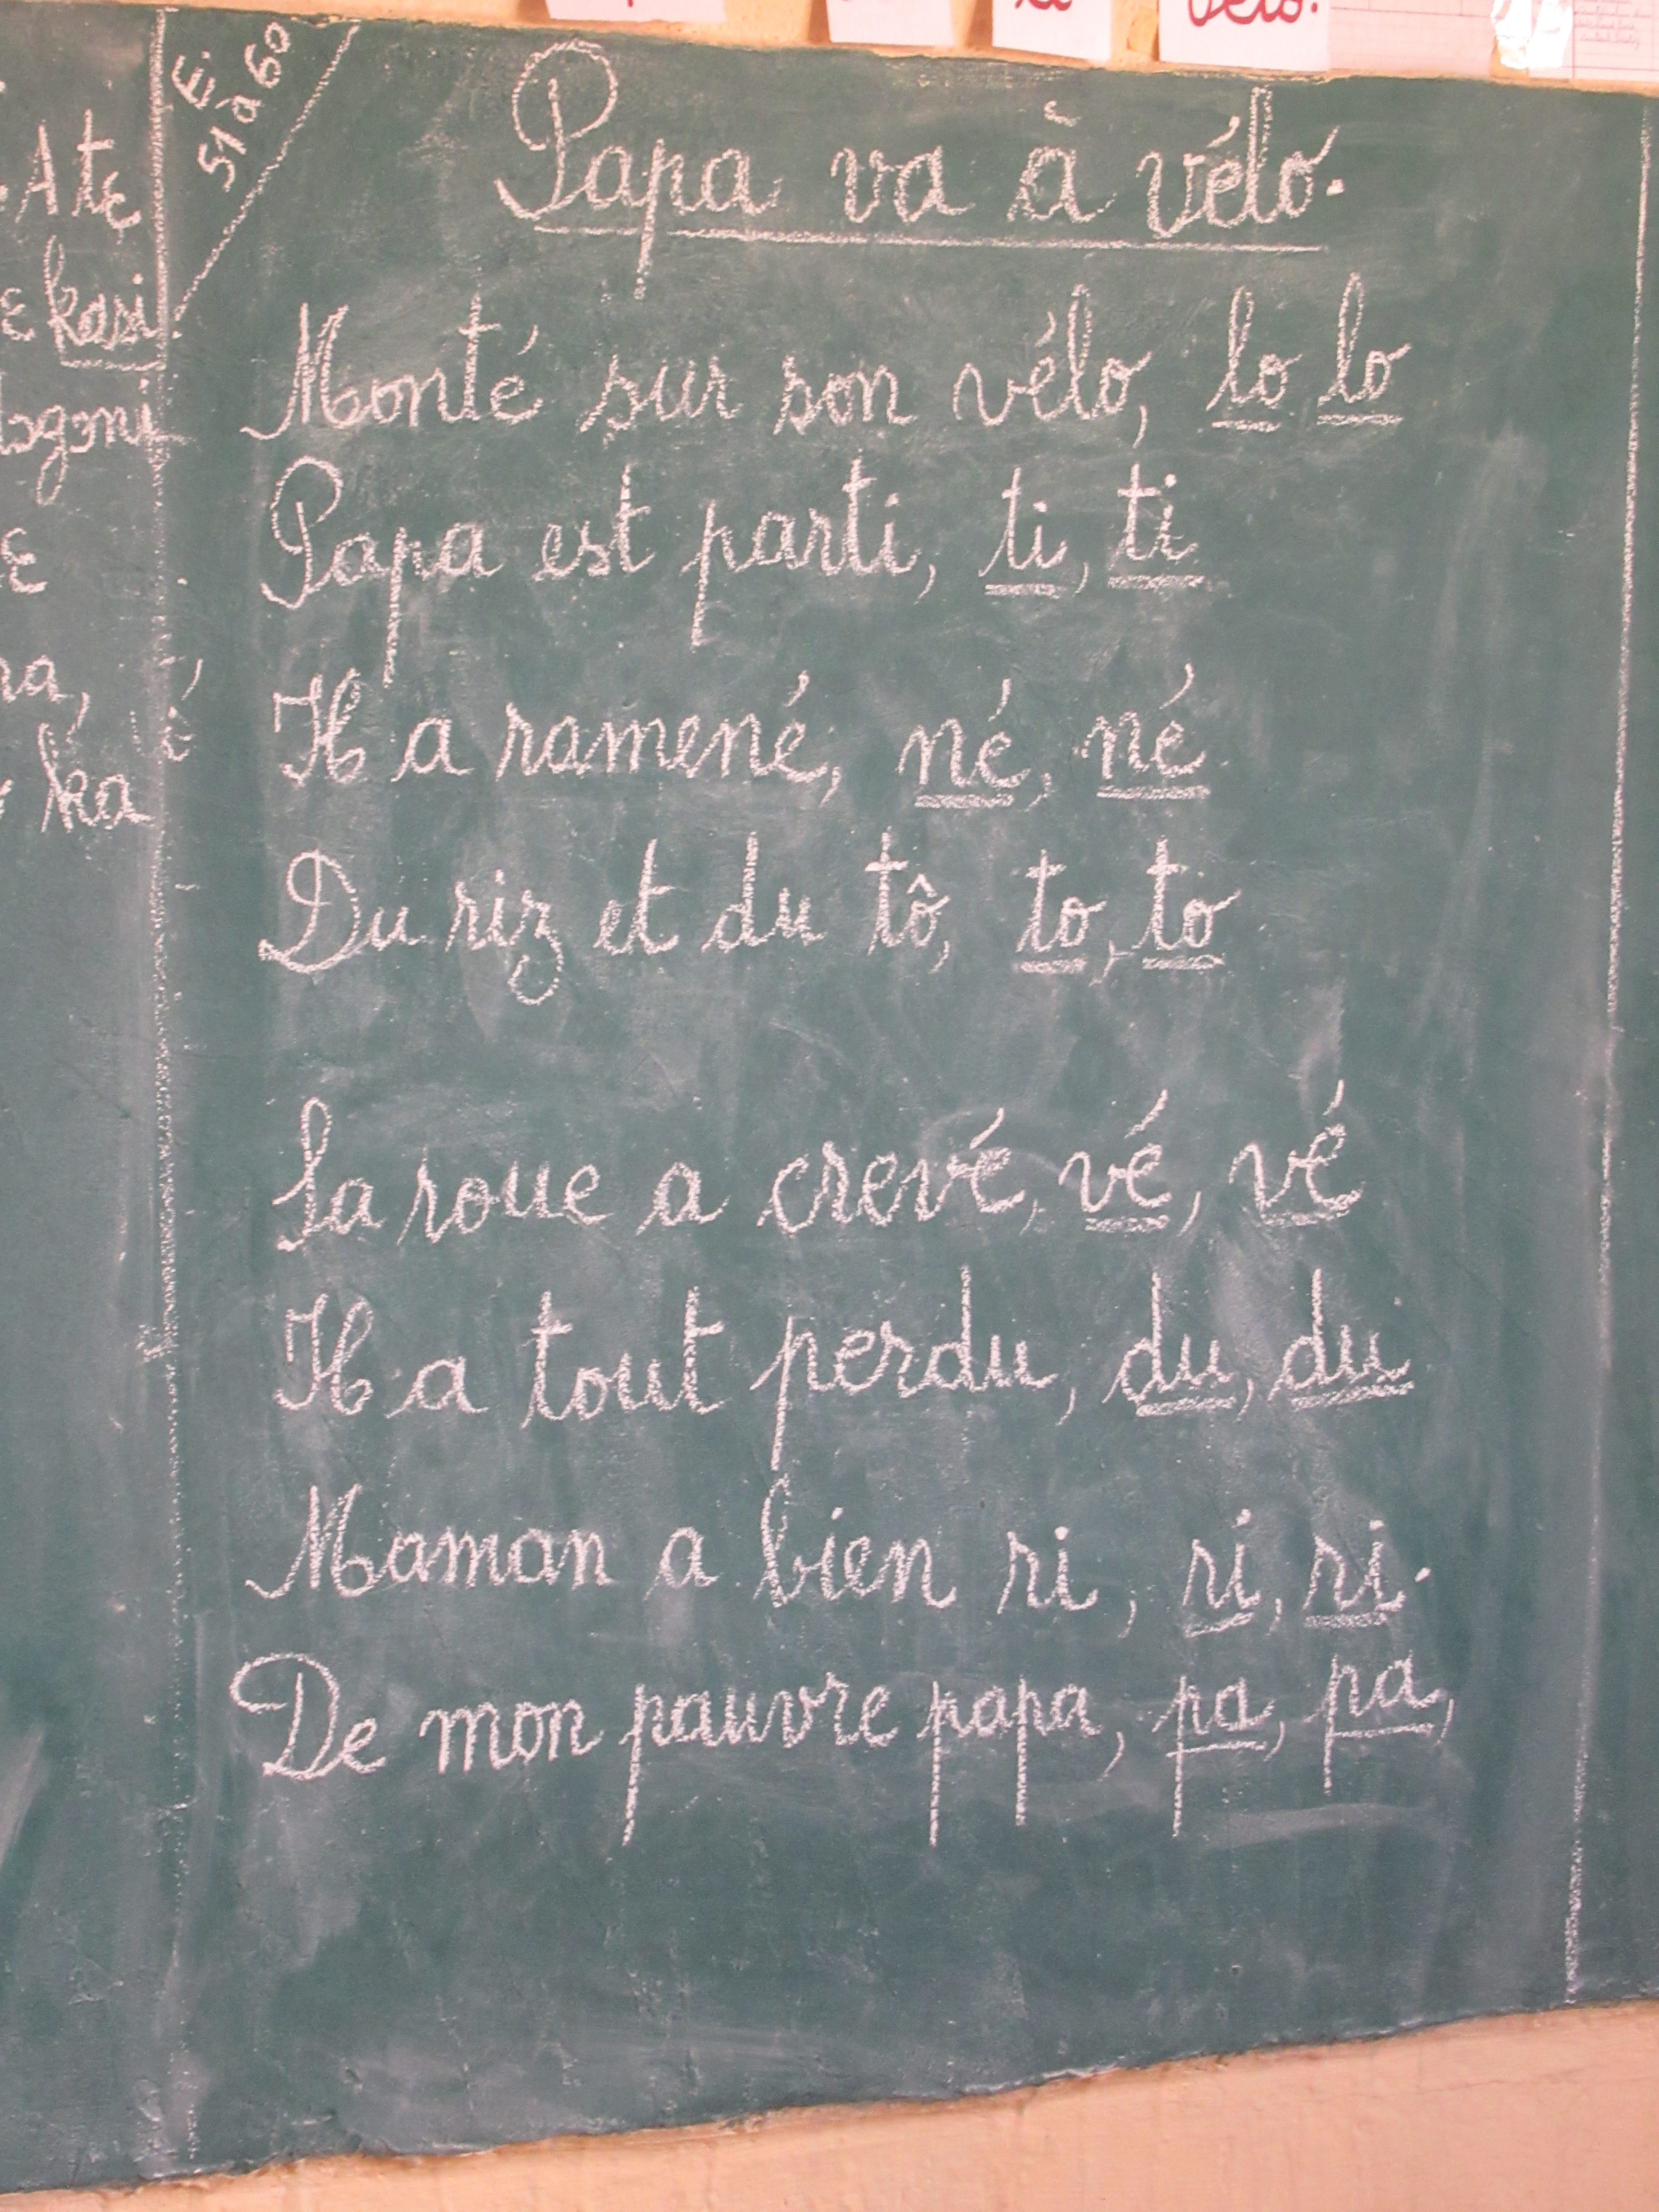 vélo.
E.
51 à 60
Papa va à vélo.
Monté sur son vélo, lo lo
Papa est parti, ti, ti
Il a ramené, né, né
Du riz et du tô, to, to
La roue a crevé, vé, vé
Il a tout perdu, du, du
Maman a bien ri, ri, ri.
De mon pauvre papa, pa, pa,
A tɛ
ɛ kasi
ka